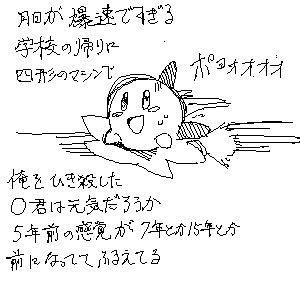 月日が爆速ですぎる
学校の帰りに
四形のマシンで
ポヨオオオイ
俺をひき殺した
〇君は元気だろうか
5年前の感覚が7年とか15年とか
前になっててふるえてる